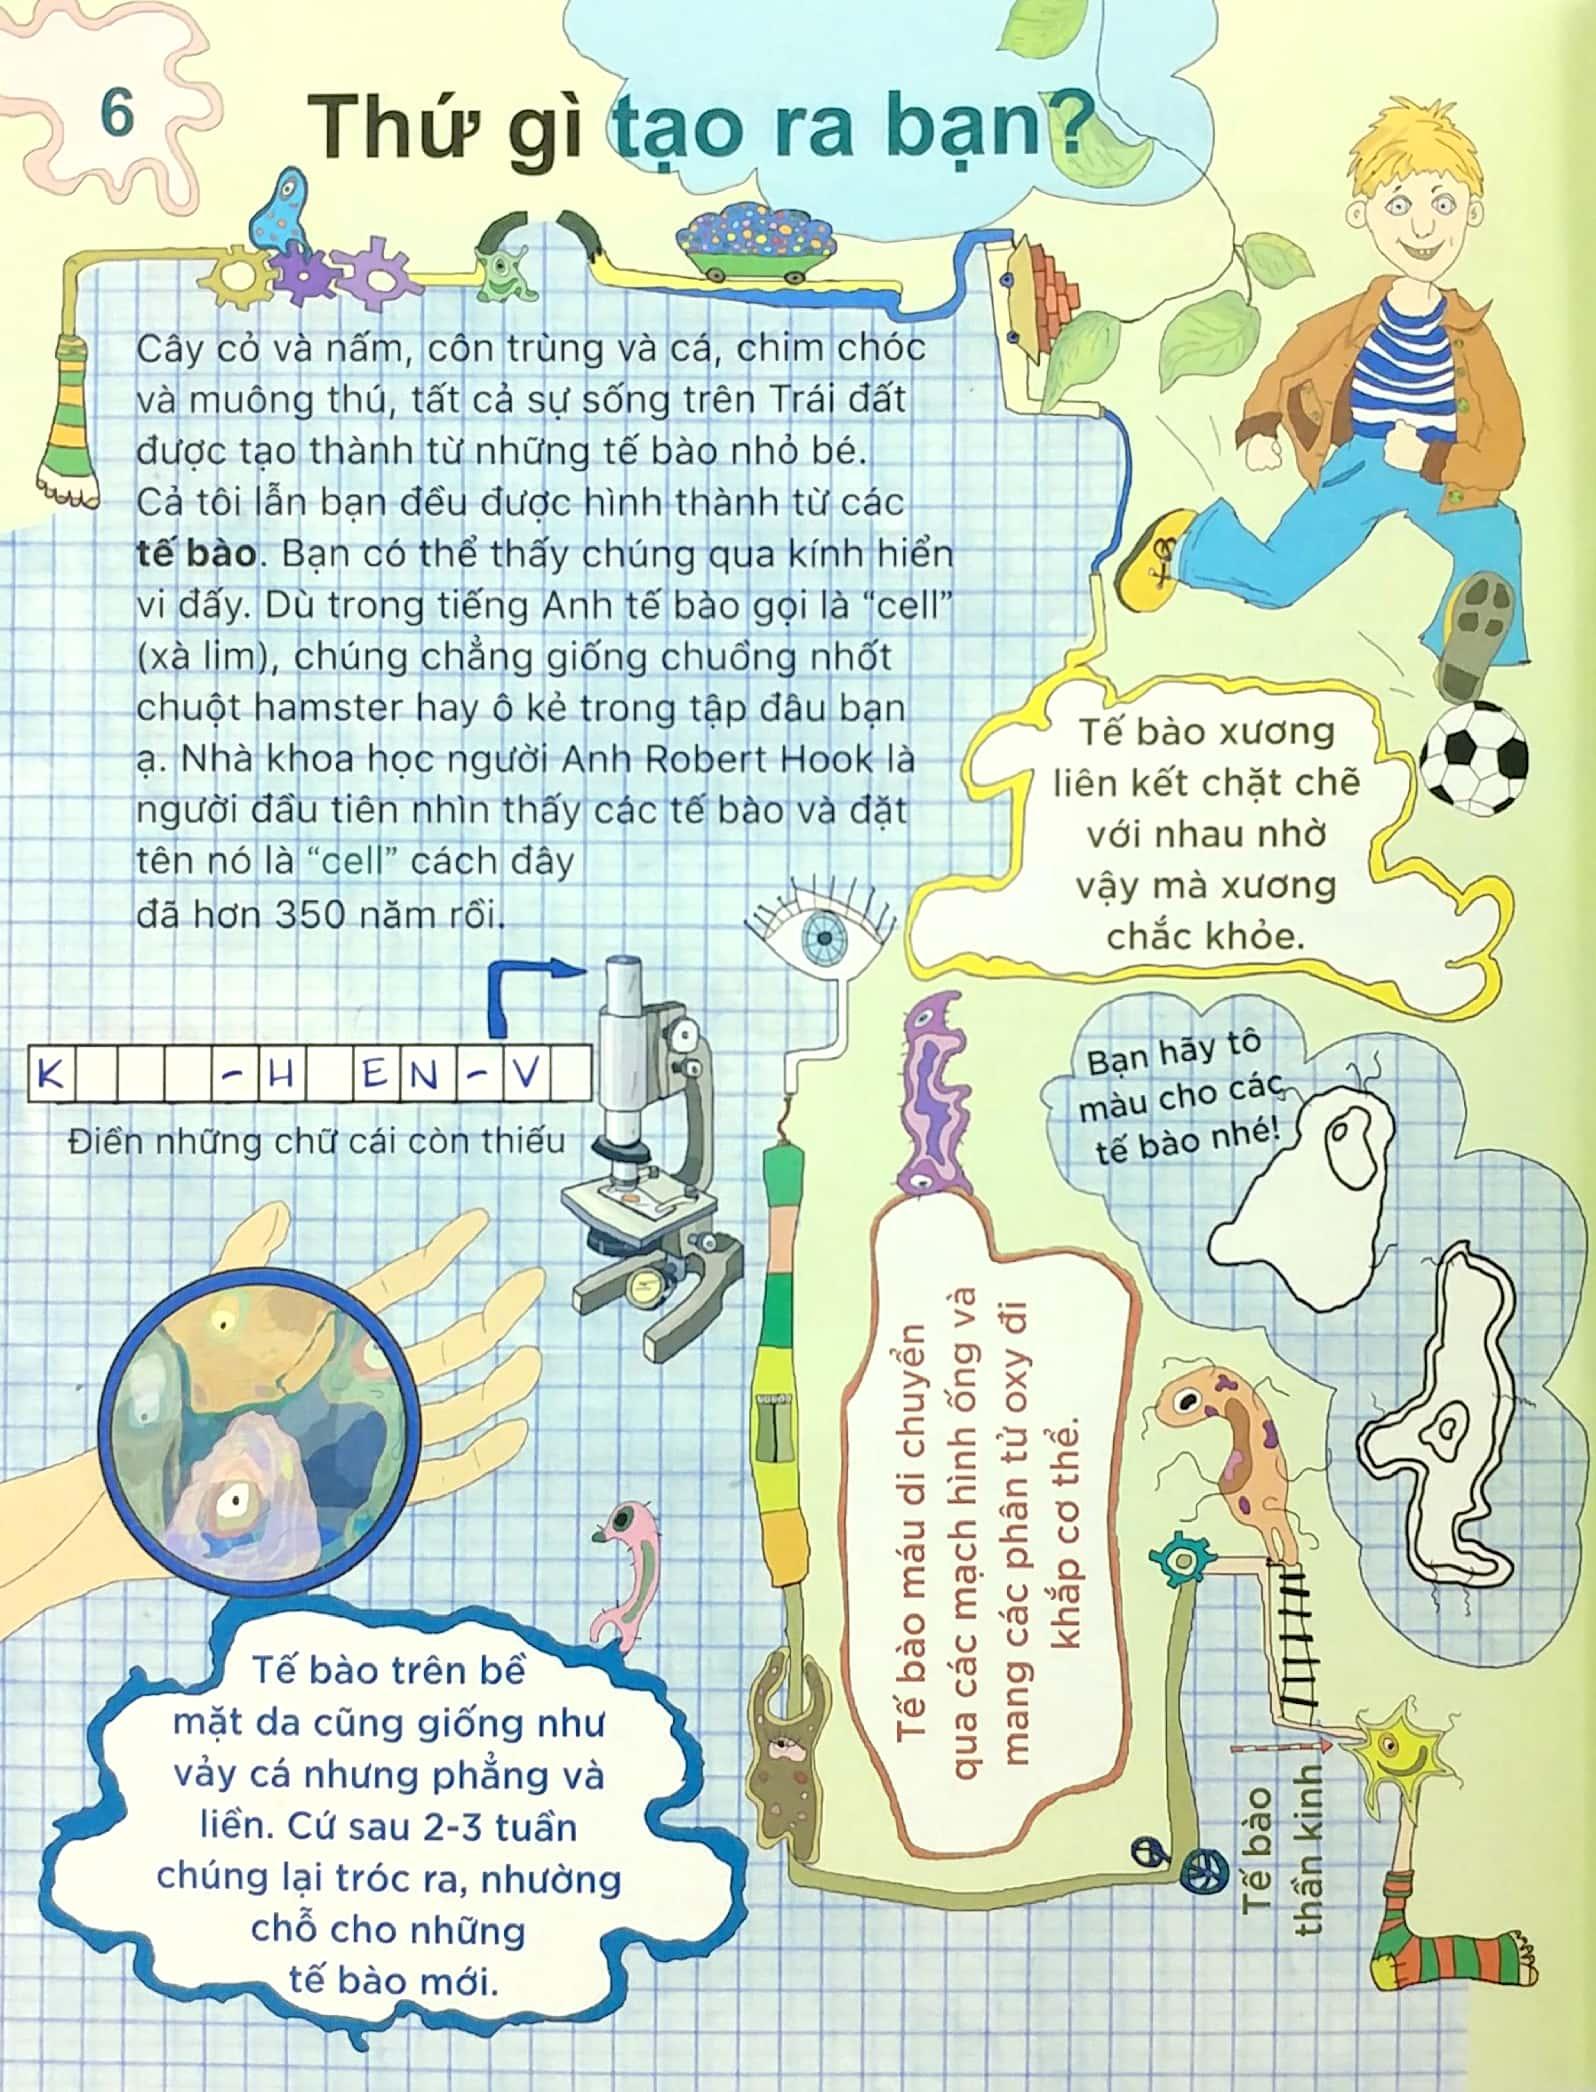 6
Thứ gì tạo ra bạn?
Cây cỏ và nấm, côn trùng và cá, chim chóc
và muông thú, tất cả sự sống trên Trái đất
được tạo thành từ những tế bào nhỏ bé.
Cả tôi lẫn bạn đều được hình thành từ các
tế bào. Bạn có thể thấy chúng qua kính hiển
vi đấy. Dù trong tiếng Anh tế bào gọi là “cell”
(xà lim), chúng chẳng giống chuồng nhốt
chuột hamster hay ô kẻ trong tập đâu bạn
ạ. Nhà khoa học người Anh Robert Hook là
người đầu tiên nhìn thấy các tế bào và đặt
tên nó là “cell” cách đây
đã hơn 350 năm rồi.
Tế bào xương
liên kết chặt chẽ
với nhau nhờ
vậy mà xương
chắc khỏe.
K - H EN - V
Điền những chữ cái còn thiếu
Bạn hãy tô
màu cho các
tế bào nhé!
Tế bào máu di chuyển
qua các mạch hình ống và
mang các phân tử oxy đi
khắp cơ thể.
Tế bào trên bề
mặt da cũng giống như
vảy cá nhưng phẳng và
liền. Cứ sau 2-3 tuần
chúng lại tróc ra, nhường
chỗ cho những
tế bào mới.
Tế bào
thần kinh